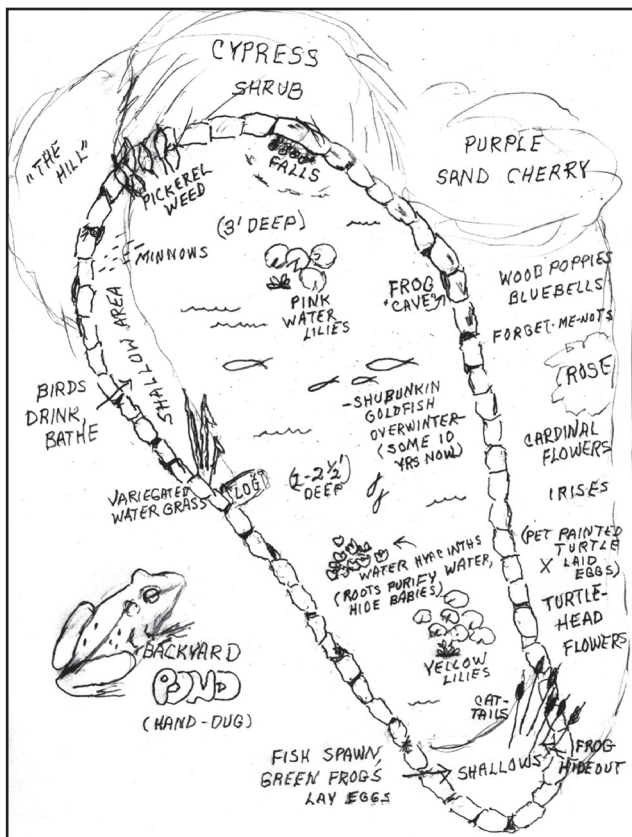 CYPRESS
SHRUB
"THE
HILL"
PURPLE
SAND CHERRY
PICKEREL
WEED
FALLS
(3' DEEP)
MINNOWS
PINK
WATER
LILIES
FROG
"CAVE"
WOOD POPPIES
BLUEBELLS
FORGET-ME-NOTS
SHALLOW AREA
ROSE
BIRDS
DRINK,
BATHE
-SHUBUNKIN
GOLDFISH
OVERWINTER-
(SOME 10
YRS NOW)
CARDINAL
FLOWERS
VARIEGATED
WATER GRASS
LOG
(2-2½')
DEEP
IRISES
(PET PAINTED
TURTLE
X LAID
EGGS)
WATER HYACINTHS
(ROOTS PURIFY WATER,
HIDE BABIES)
TURTLE-
HEAD
FLOWERS
YELLOW
LILIES
BACKYARD
POND
(HAND-DUG)
CAT-
TAILS
FISH SPAWN,
GREEN FROGS
LAY EGGS
SHALLOWS
FROG
HIDEOUT